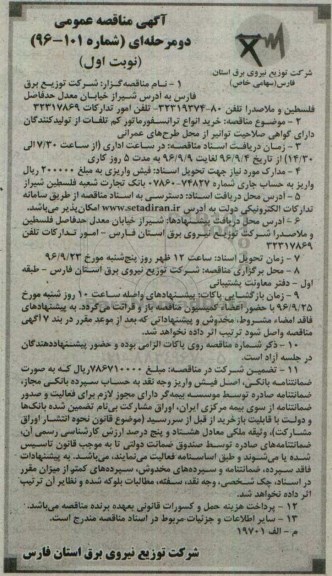 آگهی مناقصه عمومی
دومرحله‌ای (شماره ۱۰۱-۹۶)
(نوبت اول)
شرکت توزیع نیروی برق استان
فارس(سهامی خاص)
۱ - نام مناقصه‌گزار: شرکت توزیع برق
فارس به آدرس شیراز خیابان معدل حدفاصل
فلسطین و ملاصدرا تلفن ۸۰-۳۲۳۱۹۳۷۴- تلفن امور تدارکات ۳۲۳۱۷۸۶۹
۲ - موضوع مناقصه: خرید انواع ترانسفورماتور کم تلفات از تولیدکنندگان
دارای گواهی صلاحیت توانیر از محل طرح‌های عمرانی
۳ - زمان دریافت اسناد مناقصه: در ساعت اداری (از ساعت ۷/۳۰ الی
۱۴/۳۰) از تاریخ ۹۶/۹/۴ لغایت ۹۶/۹/۹ به مدت ۵ روز کاری
۴ - مدارک مورد نیاز جهت تحویل اسناد: فیش واریزی به مبلغ ۲۰۰۰۰۰ ریال
واریز به حساب جاری شماره ۷۴۸۳۷-۰۷۸۶۰ بانک تجارت شعبه فلسطین شیراز
۵ - محل دریافت اسناد: دسترسی به اسناد مناقصه از طریق سامانه
تدارکات الکترونیکی دولت به آدرس www.setadiran.ir امکان پذیر می‌باشد.
۶ - آدرس محل دریافت پیشنهادها: شیراز خیابان معدل حدفاصل فلسطین
و ملاصدرا شرکت توزیع نیروی برق استان فارس - امور تدارکات تلفن
۳۲۳۱۷۸۶۹
۷ - زمان تحویل اسناد: ساعت ۱۲ ظهر روز پنج‌شنبه مورخ ۹۶/۹/۲۳
۸ - محل برگزاری مناقصه: شرکت توزیع نیروی برق استان فارس - طبقه
اول - دفتر معاونت پشتیبانی
۹ - زمان بازگشایی پاکات: پیشنهادهای واصله ساعت ۱۰ روز شنبه مورخ
۹۶/۹/۲۵ با حضور اعضاء کمیسیون مناقصه باز و قرائت می‌گردد. به پیشنهادهای
فاقد امضاء مشروط، مخدوش و پیشنهاداتی که بعد از موعد مقرر در بند ۷ آگهی
مناقصه واصل شود ترتیب اثر داده نخواهد شد.
۱۰ - ذکر شماره مناقصه روی پاکات الزامی بوده و حضور پیشنهاددهندگان
در جلسه آزاد است.
۱۱ - تضمین شرکت در مناقصه: مبلغ ۷۸۶۷۱۰۰۰۰ ریال که به صورت
ضمانتنامه بانکی، اصل فیش واریز وجه نقد به حساب سپرده بانکی مجاز،
ضمانتنامه صادره توسط موسسه بیمه‌گر دارای مجوز لازم برای فعالیت و صدور
ضمانتنامه از سوی بیمه مرکزی ایران، اوراق مشارکت بی‌نام تضمین شده بانک‌ها
و دولت با قابلیت بازخرید از قبل از سررسید (موضوع قانون نحوه انتشار اوراق
مشارکت)، وثیقه ملکی معادل هشتاد و پنج درصد ارزش کارشناسی رسمی آن،
ضمانتنامه‌های صادره توسط صندوق ضمانت دولتی تا به موجب قانون تاسیس
شده یا می‌شوند و طبق اساسنامه فعالیت می‌نمایند، می‌باشد. به پیشنهادات
فاقد سپرده، ضمانتنامه و سپرده‌های مخدوش، سپرده‌های کمتر از میزان مقرر
در اسناد، چک شخصی، وجه نقد، سفته، مطالبات بلوکه شده و نظایر آن ترتیب
اثر داده نخواهد شد.
۱۲ - پرداخت هزینه حمل و کسورات قانونی بعهده برنده مناقصه می‌باشد.
۱۳ - سایر اطلاعات و جزئیات مربوط در اسناد مناقصه مندرج است.
م - الف ۱۹۷۰۱
شرکت توزیع نیروی برق استان فارس